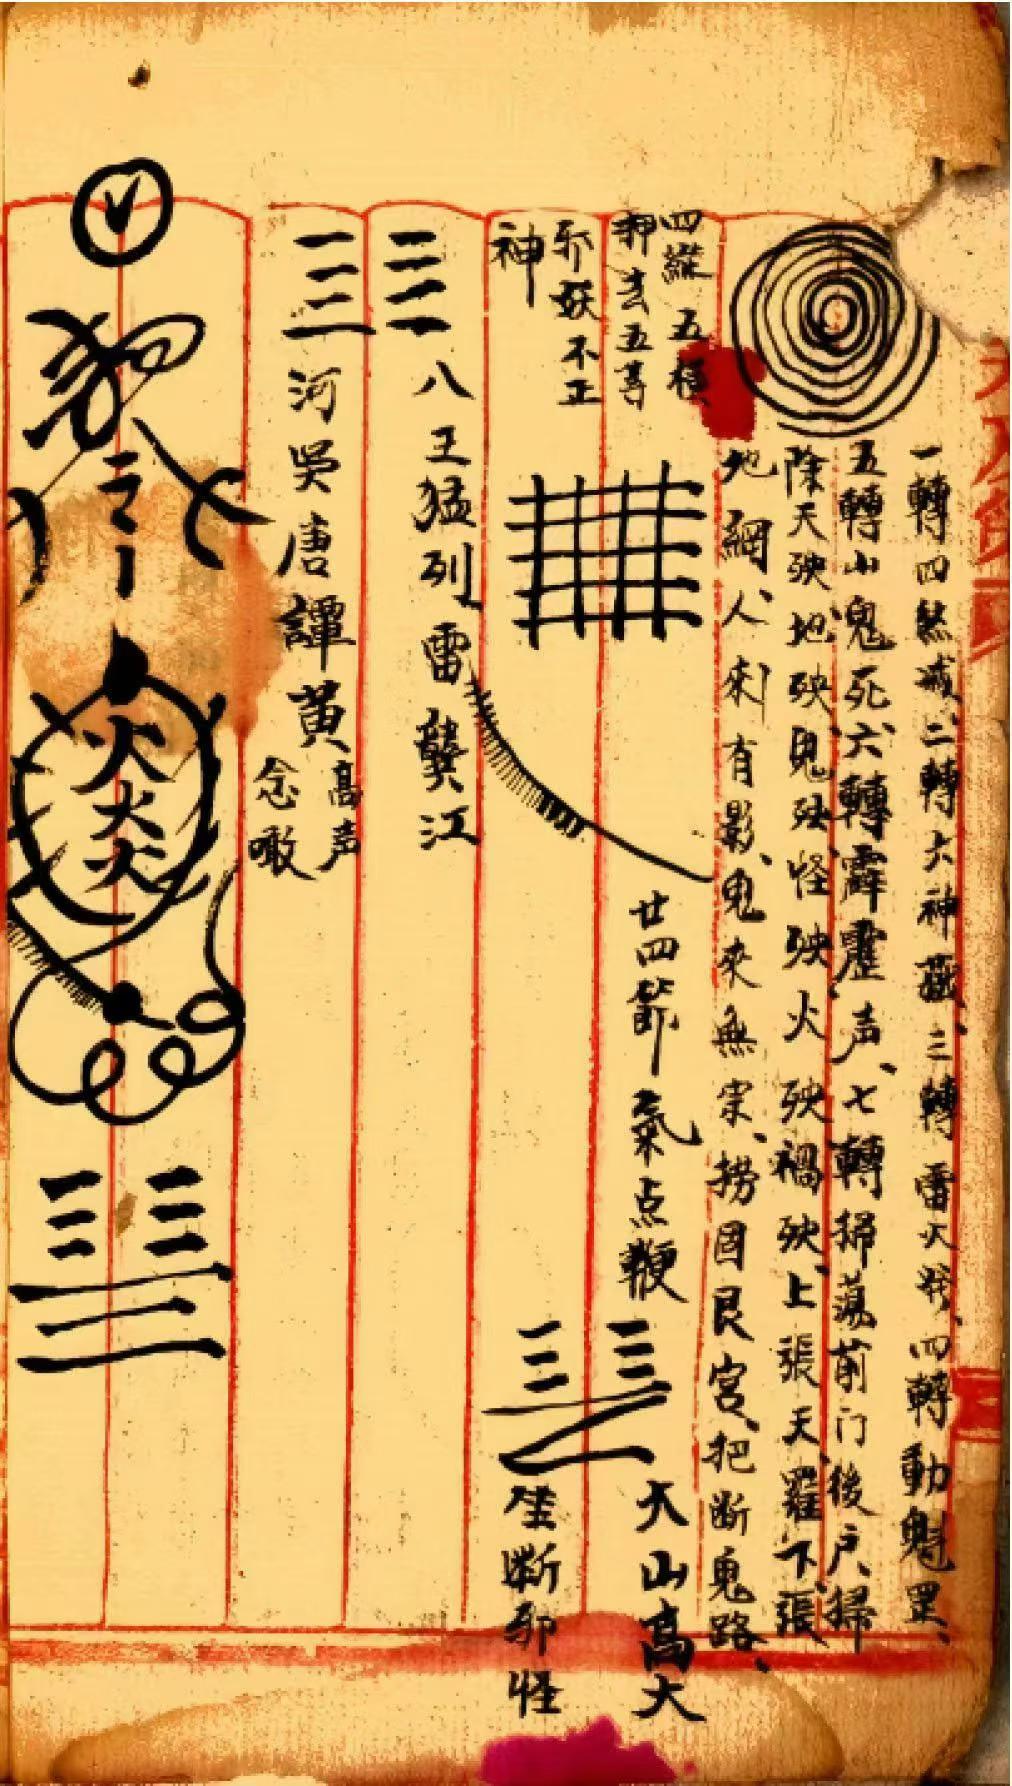 一轉四煞滅、二轉六神藏、三轉雷火發、四轉動魁罡、
五轉山鬼死、六轉霹靂声、七轉掃蕩前门後户、掃
除天殃地殃鬼殃怪殃火殃禍殃、上張天羅、下張
地網、人來有影、鬼來無宗、撈固艮宮、把断鬼路、
四縱五橫
押去五等
邪妖不正
神
廿四節氣点鞭
大山高大
坐断邪怪
八王猛列雷龔江
河吳唐譚黃
高声
念噉
火火火